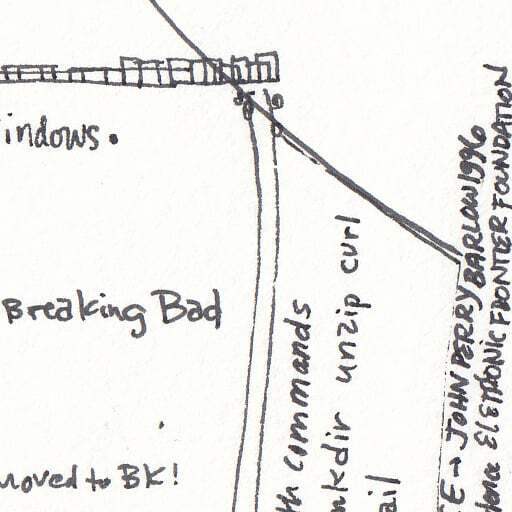 indows.
Breaking Bad
moved to BK!
commands
mkdir unzip curl
ail
E → JOHN PERRY BARLOW 1996
ELETRONIC FRONTIER FOUNDATION